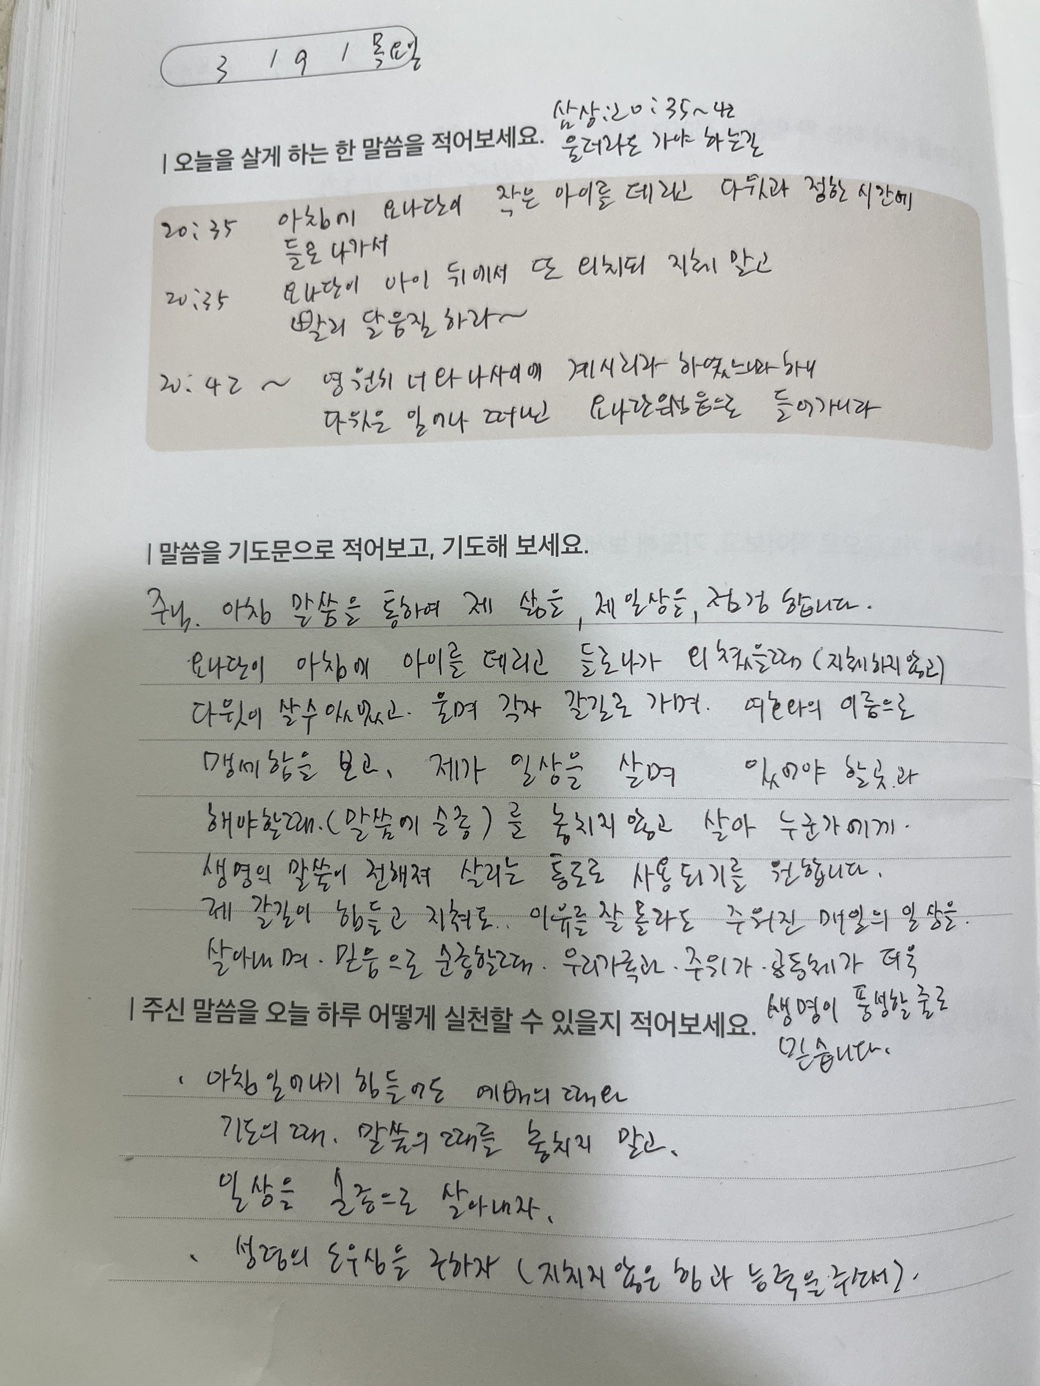 3 / 9 / 목요일
삼상:20:35~42
| 오늘을 살게 하는 한 말씀을 적어보세요. 울더라도 가야 하는길
20:35 아침에 요나단이 작은 아이를 데리고 다윗과 정한 시간에
들로 나가서
20:35 요나단이 아이 뒤에서 또 외치되 지체 말고
빨리 달음질 하라~
20:42 ~ 영원히 너와 나사이에 계시리라 하였느니라 하니
다윗은 일어나 떠나고 요나단은성읍으로 들어가니라
| 말씀을 기도문으로 적어보고, 기도해 보세요.
주님. 아침 말씀을 통하여 제 삶을, 제 일상을, 점검 합니다.
요나단이 아침에 아이를 데리고 들로나가 외쳤을때 (지체하지 않고)
다윗이 살수 있었고. 울며 각자 갈길로 가며. 여호와의 이름으로
맹세함을 보고, 제가 일상을 살며 있어야 할곳과
해야할때.(말씀에 순종)를 놓치지 않고 살아 누군가에게.
생명의 말씀이 전해져 살리는 통로로 사용되기를 원합니다.
제 갈길이 힘들고 지쳐도.. 이유를 잘 몰라도 주워진 매일의 일상을.
살아내며. 믿음으로 순종할때. 우리가족과. 주위가. 공동체가 더욱
생명이 풍성할 줄로
| 주신 말씀을 오늘 하루 어떻게 실천할 수 있을지 적어보세요. 믿습니다.
. 아침 일어나기 힘들어도 예배의 때와
기도의 때. 말씀의 때를 놓치지 말고,
일상을 순종으로 살아내자.
. 성령의 도우심을 구하자 (지치지 않은 힘과 능력을 주셔서).